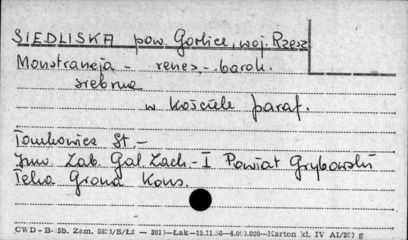 SIEDLISKA pow. Gorlice, woj. Rzesz
Monstrancja - renes.- barok.
srebrna
w kościele paraf.
Tomkowicz St. -
Inw. Zab. Gal. Zach. - I Powiat Grybowski
Teka Grona Kons.
CWD - B- Zam. Łak 4.000.000 Karton kl. IV A1/200 g